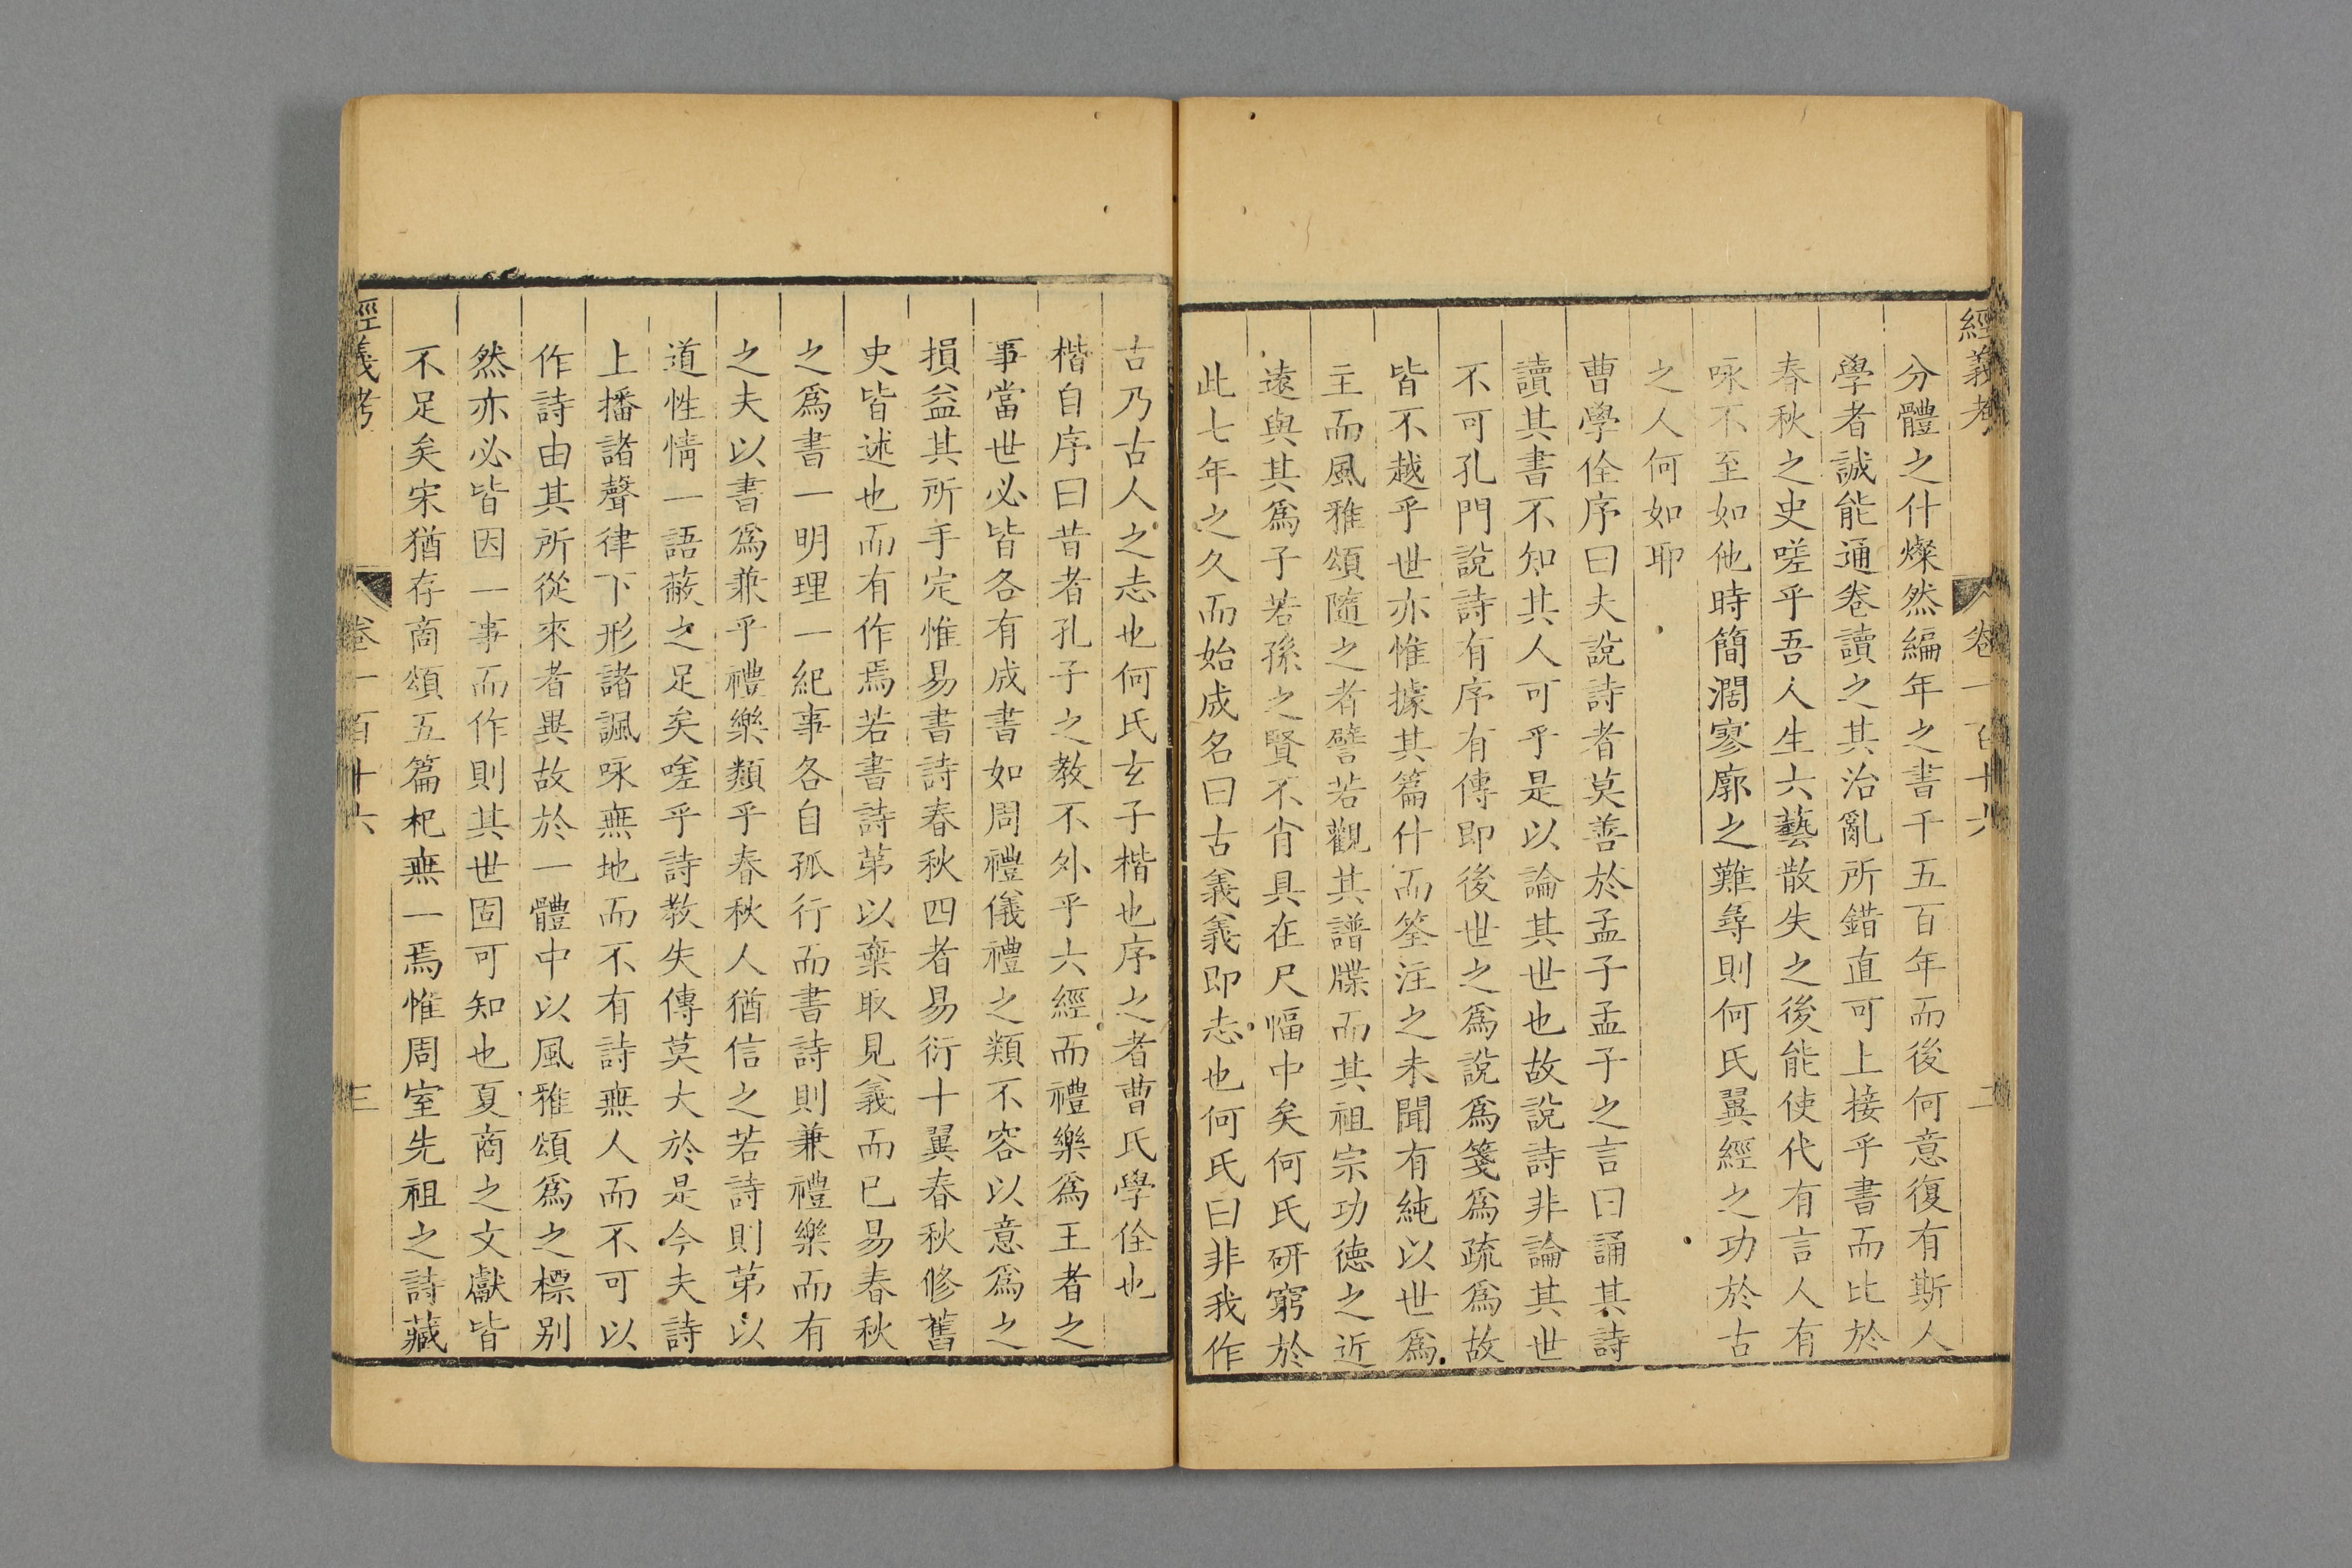 經義考 卷一百十六 二
分體之什燦然編年之書千五百年而後何意復有斯人
學者誠能通卷讀之其治亂所錯直可上接乎書而比於
春秋之史嗟乎吾人生六藝散失之後能使代有言人有
咏不至如他時簡濶寥廓之難尋則何氏翼經之功於古
之人何如耶
曹學佺序曰夫說詩者莫善於孟子孟子之言曰誦其詩
讀其書不知其人可乎是以論其世也故說詩非論其世
不可孔門說詩有序有傳即後世之爲說爲箋爲疏爲故
皆不越乎世亦惟據其篇什而筌注之未聞有純以世爲
主而風雅頌隨之者譬若觀其譜牒而其祖宗功德之近
遠與其爲子若孫之賢不肖具在尺幅中矣何氏研窮於
此七年之久而始成名曰古義義即志也何氏曰非我作
古乃古人之志也何氏玄子楷也序之者曹氏學佺也
楷自序曰昔者孔子之教不外乎六經而禮樂爲王者之
事當世必皆各有成書如周禮儀禮之類不容以意爲之
損益其所手定惟易書詩春秋四者易衍十翼春秋修舊
史皆述也而有作焉若書詩苐以棄取見義而已易春秋
之爲書一明理一紀事各自孤行而書詩則兼禮樂而有
之夫以書爲兼乎禮樂類乎春秋人猶信之若詩則苐以
道性情一語蔽之足矣嗟乎詩教失傳莫大於是今夫詩
上播諸聲律下形諸諷咏無地而不有詩無人而不可以
作詩由其所從來者異故於一體中以風雅頌爲之標別
然亦必皆因一事而作則其世固可知也夏商之文獻皆
不足矣宋猶存商頌五篇杞無一焉惟周室先祖之詩藏
經義考 卷一百十六 三